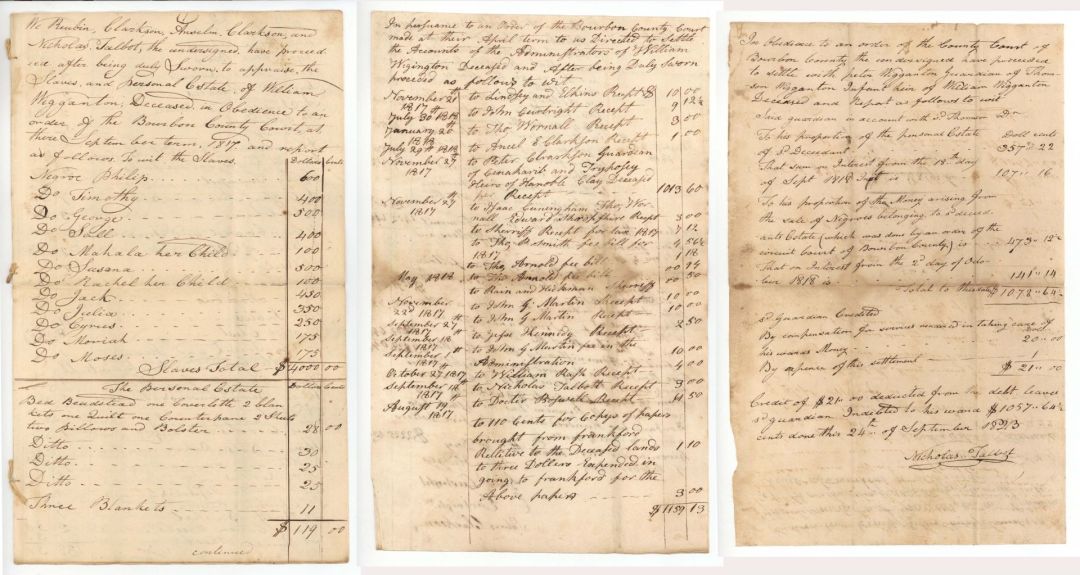 We Reubin, Clarkson, Anselm, Clarkson, and
Nicholas, Talbot, the undersigned, have proceed
ed after being duly Sworn, to appraise, the
Slaves, and Personal Estate, of William
Wigganton, Deceased, in Obedience to an
order of the Bourbon County Court, at
there September term, 1817 and report
as follows to wit the Slaves. Dollars Cents
Negroe Philip. 600
Do Timothy 400
Do George. 500
Do Sall 400
Do Mahala her Child 100
Do Susana 500
Do Rachel her Child 100
Do Jack. 450
Do Julia. 350
Do Cyrus. 250
Do Moriah 175
Do Moses. 175
Slaves Total $4000 00
The Personal Estate Dollars Cents
Bed Beadstead one Coverlette 2 blan
kets one Quilt one Counterpane 2 Sheets
two Pillows and Bolster 28 00
Ditto 30
Ditto. 25
Ditto 25
Three Blankets 11
$ 119 00
continued
In persuance to an Order of the Bourbon County Court
made at their April term to as Directed to Settle
the Accounts of the Administrators of William
Wigington Deceased and After being Duly Sworn
proceed as follows to wit
November 21st 1817 to Lindsey and Elkins Recpt $ 10 00
July 30 1818 to John Cuwright Recept 9 12½
January 20 1818 to Tho, Wornall Recept 3 00
July 29th 1818 to Ancel E Clarkson Recpt 1 00
November 27 1817 to Peter Clarkson Guardian
of and Tryphosey
Heirs of Clay Deceased
her Recept 1013 60
November 27th 1817 to Isaac Cuningham Tho, Wor-
nall Edward Recpt 3 00
to Sherriff Recept for tax 1817 7 12
to Tho, P. Smith fee bill for 4 56½
1817 1 18
to Tho, Arnold fee bill
May 1818 to Tho Arnold fee bill 50
to Rain and Hickman Sherriff 10 00
November 22d 1817 to John G Martin Recept 10 00
September 27th 1817 to John G Martin Recpt 2 50
September 18 1817 to Jesse Kennedy Recept
September 1817 to John G Martin fee in the
Administration 10 00
October 27 1817 to William Rask Recept 4 00
September 18th to Nicholas Talbott Recept 3 00
August 14th 1817 to Doctor Recpt 11 50
to 110 Cents for Copeys of papers
brought from frankford
Relitive to the Deceased lands 1 10
to three Dollers Expended in
going to frankford for the
Above papers 3 00
$ 1159 13
In obedience to an order of the County Court of
Bourbon County the undersigned have proceeded
to settle with peter Wigganton Guardian of Thom-
son Wigganton Infant heir of William Wigganton
Deceased and Report as follows to wit
Said guardian in account with sd Thomson Dr
To his proportion of the personal Estate Doll cents
of sd Decedant 357" 22
That sum on Interest from the 18th day
of Sept 1818 Int is 107" 16
To his proportion of the Money arising from
the sale of Negroes belonging to sd deced-
ants Estate (which was done by an order of the
circuit Court of Bourbon County) is 473" 12½
That on Interest from the 2d day of Octo
ber 1818 is 141" 14
Total to this date $ 1078" 64½
sd Guardian Credited
By compensation for services rendered in taking care of
his wards Money 20" 00
By expense of this settlement 1
$ 21" 00
Credit of $21" 00 deducted from the debt leaves
sd guardian Indetted to his ward $1057" 64½
cents done this 24th of September 1823
Nicholas Talbot